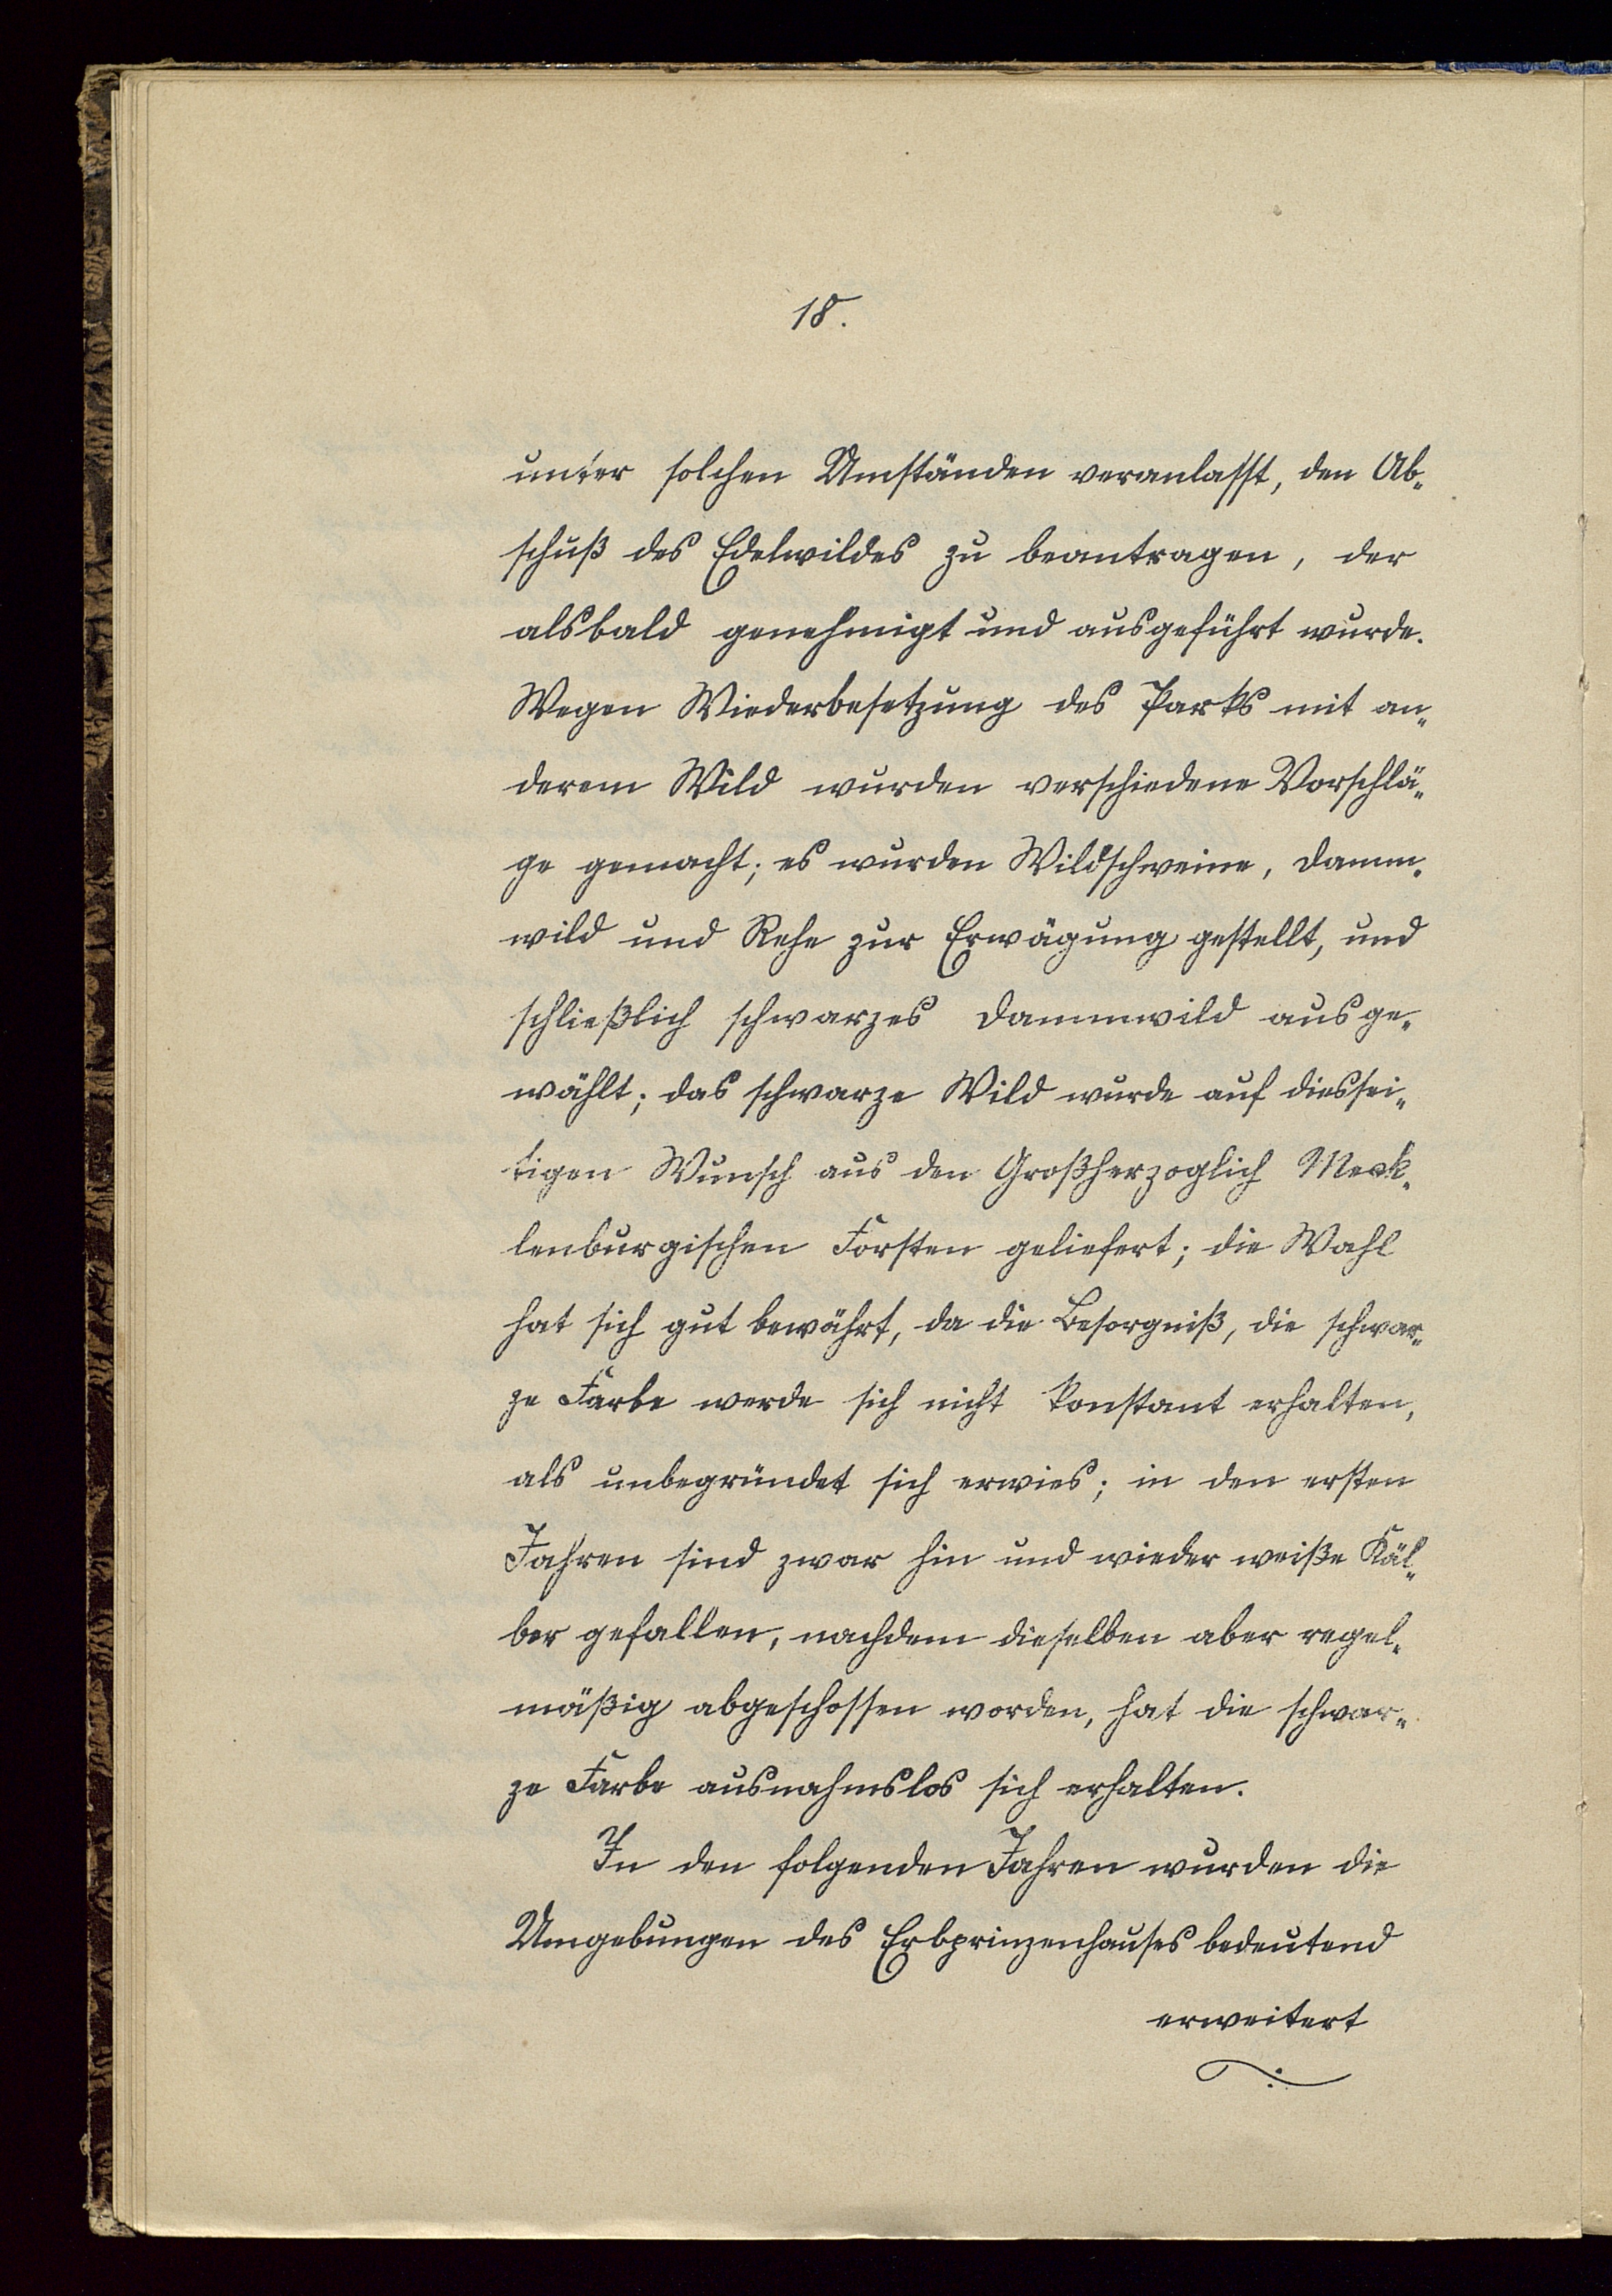 18.
unter solchen Umständen veranlasst, den Ab-
schuß des Edelwildes zu beantragen, der
alsbald genehmigt und ausgeführt wurde.
Wegen Wiederbesetzung des Parks mit an-
derem Wild wurden verschiedene Vorschlä-
ge gemacht; es wurden Wildschweine, Damm-
wild und Rehe zur Erwägung gestellt, und
schließlich schwarzes Dammwild ausge-
wählt; das schwarze Wild wurde auf diessei-
tigen Wunsch aus den Großherzoglich Meck-
lenburgischen Forsten geliefert; die Wahl
hat sich gut bewährt, da die Besorgniß, die schwar-
ze Farbe werde sich nicht konstant erhalten,
als unbegründet sich erwies; in den ersten
Jahren sind zwar hin und wieder weiße Käl-
ber gefallen, nachdem dieselben aber regel-
mäßig abgeschossen worden, hat die schwar-
ze Farbe ausnahmslos sich erhalten.
In den folgenden Jahren wurden die
Umgebungen des Erbprinzenhauses bedeutend
erweitert